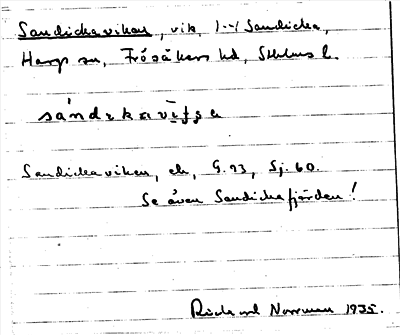 Sandickaviken, vik, i Sandicka,
Hargs sn, Frösåkers hd, Sthlms l.
Sandickaviken, ek, G.93, Sj. 60.
Se även Sandickafjärden!
Rickard Norrman 1935.